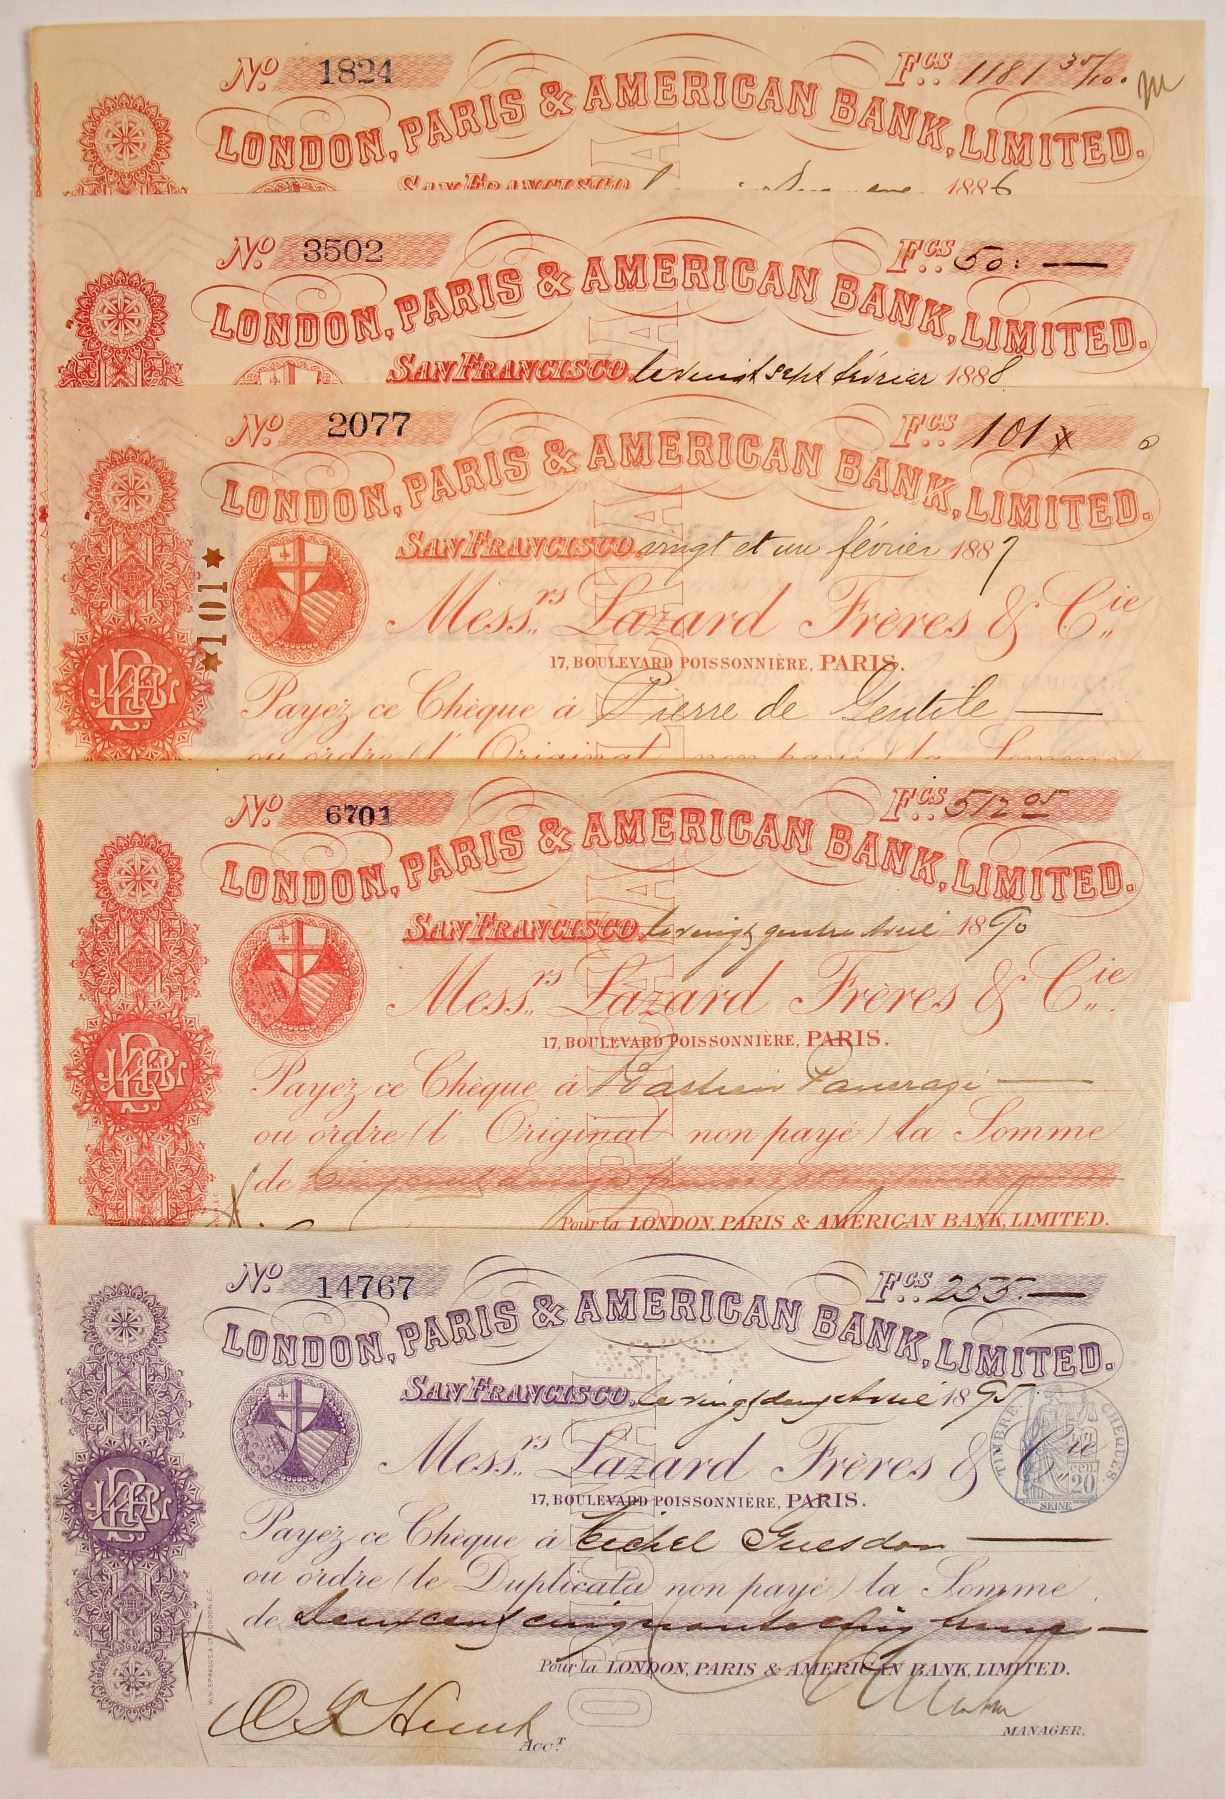 No. 1824 Fcs.. 1181 35/100
LONDON, PARIS & AMERICAN BANK, LIMITED.
SAN FRANCISCO, 1886
No. 3502 Fcs.. 50: —
LONDON, PARIS & AMERICAN BANK, LIMITED.
SAN FRANCISCO, le vingt sept février 1888
No. 2077 Fcs.. 101
LONDON, PARIS & AMERICAN BANK, LIMITED.
SAN FRANCISCO, vingt et un février 1887
★101★
Messrs. Lazard Frères & Cie.
17, BOULEVARD POISSONNIÈRE, PARIS.
Payez ce Chèque à Pierre de Gentile —
ou ordre (l' Original non payé) la Somme
No. 6701 Fcs.. 512 05
LONDON, PARIS & AMERICAN BANK, LIMITED.
SAN FRANCISCO, le vingt quatre Avril 1890
Messrs. Lazard Frères & Cie.
17, BOULEVARD POISSONNIÈRE, PARIS.
Payez ce Chèque à Bastien —
ou ordre (l' Original non payé) la Somme
de
Pour la LONDON, PARIS & AMERICAN BANK, LIMITED.
No. 14767 Fcs.. 255. —
LONDON, PARIS & AMERICAN BANK, LIMITED.
SAN FRANCISCO, le vingt deux Avril 1895
TIMBRE CHEQUES.
20
SEINE
Messrs. Lazard Frères & Cie
17, BOULEVARD POISSONNIÈRE, PARIS.
Payez ce Chèque à Michel Guesdon —
ou ordre (le Duplicata non payé) la Somme
de Deux cent cinquante cinq francs —
ORIGINAL
Pour la LONDON, PARIS & AMERICAN BANK, LIMITED.
Acct.
MANAGER.